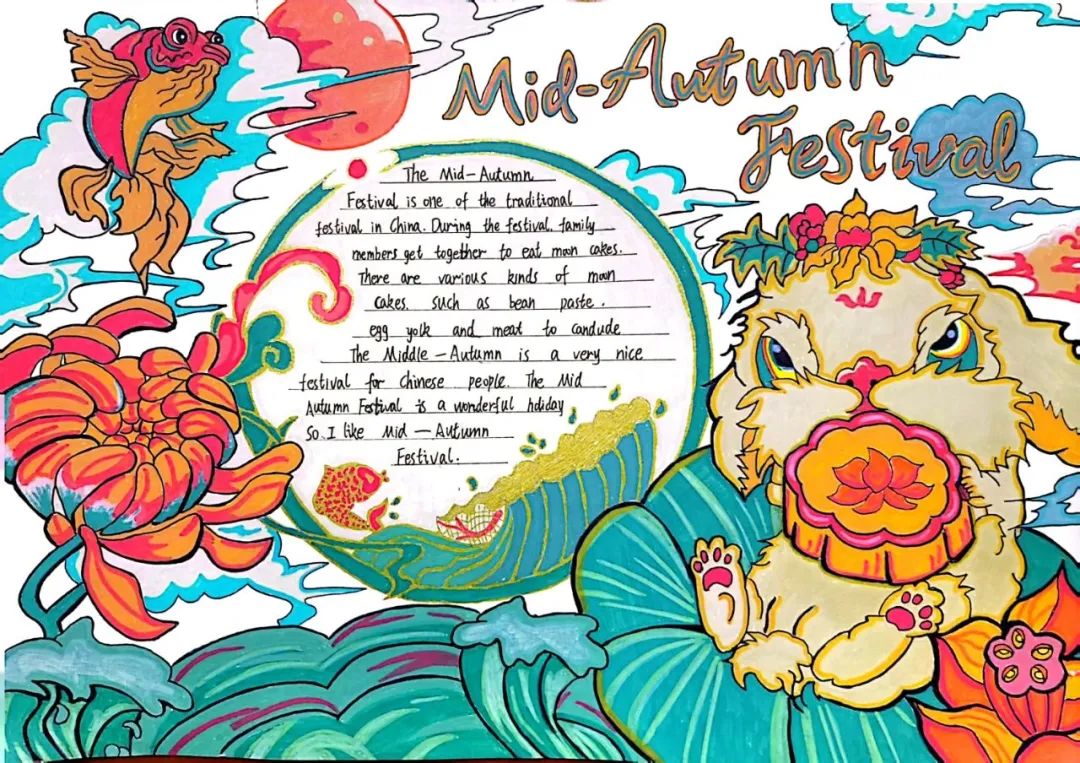 Mid-Autumn
Festival
The Mid-Autumn
Festival is one of the traditional
festival in China. During the festival, family
members get together to eat moon cakes.
There are various kinds of moon
cakes. such as bean paste.
egg yolk and meat to conclude
The Middle-Autumn is a very nice
festival for Chinese people. The Mid
Autumn Festival is a wonderful holiday
So. I like Mid-Autumn
Festival.